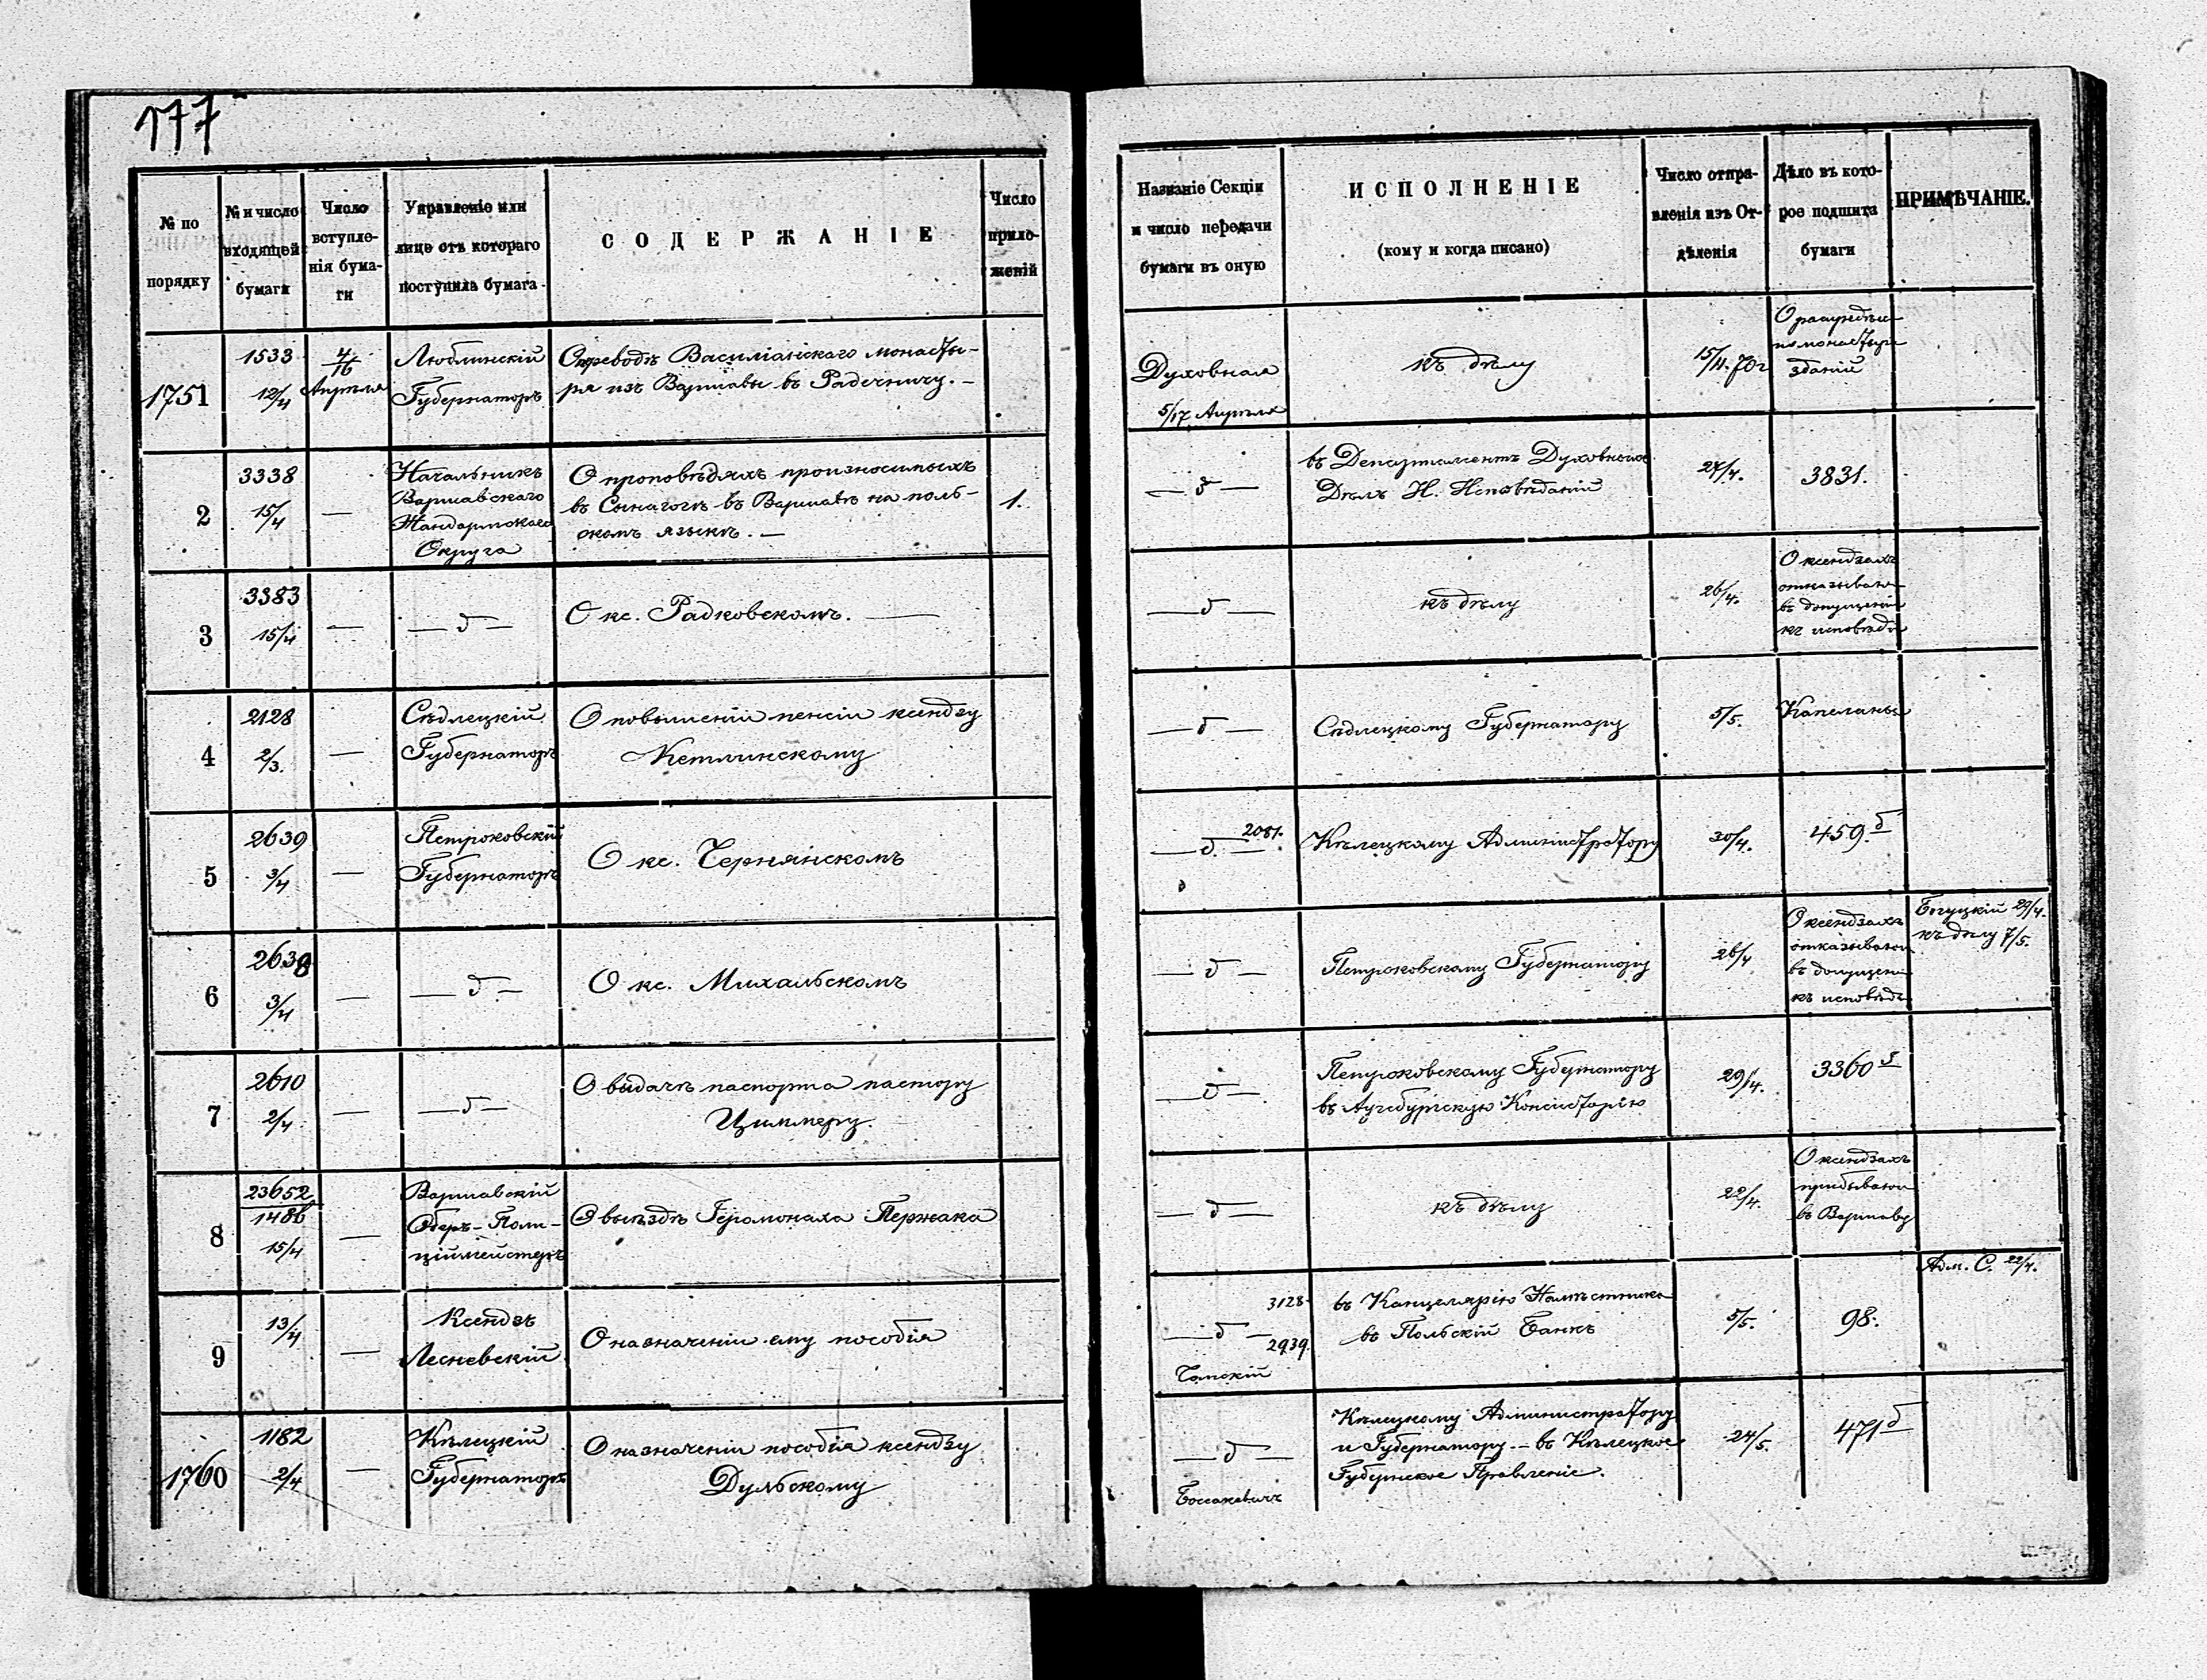 177
№ по порядку
№ и число входящей бумаги
Число вступле-нія бума-ги
Управленіе или лице отъ котораго поступила бумага
СОДЕРЖАНІЕ
Число прило-женій
Названіе Секціи и число передачи бумаги въ оную
ИСПОЛНЕНІЕ
(кому и когда писано)
Число отпра-вленія изъ От-дѣленія
Дѣло въ кото-рое подшита бумаги
ПРИМѢЧАНІЕ.
1751
1533
12/4
4/16 Апрѣля
Люблинскій
Губернаторъ
О переводѣ Василіанскаго монасты-
ря изъ Варшавы въ Радечницу. —
Духовная
5/17 Апрѣля
къ дѣлу
15/4. 70г
зданій
2
3338
15/4
—
Начальникъ
Варшавскаго
Жандармскаго
Округа
О проповѣдяхъ произносимыхъ
въ Сынагогѣ въ Варшавѣ на поль-
скомъ языкѣ. —
1.
— д —
въ Департаментъ Духовныхъ
Дѣлъ И. Исповѣданій
27/4.
3831.
3
3383
15/4
—
— д —
О кс. Радковскомъ. —
— д —
къ дѣлу
26/4.
О ксендзахъ
отказываю
въ допущеніи
къ исповѣди
4
2128
2/3.
—
Сѣдлецкій
Губернаторъ
О повышеніи пенсіи ксендзу
Кетлинскому
— д —
Сѣдлецкому Губернатору
5/5.
Капеланы
5
2639
3/4
—
Петроковскій
Губернаторъ
О кс. Чернянскомъ
2081.
— д. —
Кѣлецкому Администратору
30/4.
459 д
6
2638
3/4
—
— д. —
О кс. Михальскомъ
— д —
Петроковскому Губернатору
26/4
О ксендзахъ
отказываю
въ допущен
къ исповѣди
Богуцкій 29/4.
къ дѣлу 7/5.
7
2610
2/4
—
— д —
О выдачѣ паспорта пастору
Циммеру.
— д —
Петроковскому Губернатору
въ Аугсбургскую Консисторію
29/4.
3360 д
8
23652
1486
15/4
—
Варшавскій
Оберъ-Поли-
ціймейстеръ
О выѣздѣ Іеромонаха Пержака
— д —
къ дѣлу
22/4.
О ксендзахъ
прибываю
въ Варшаву
9
13/4
—
Ксендзъ
Лесневскій
О назначеніи ему пособія
3128
— д —
2939.
въ Канцелярію Намѣстника
въ Польскій Банкъ
5/5.
98.
Адм. С. 22/4.
1760
1182
2/4
—
Кѣлецкій
Губернаторъ
О назначеніи пособія ксендзу
Дульскому
— д —
Кѣлецкому Администратору
и Губернатору. — въ Кѣлецкое
Губернское Правленіе.
24/5.
471 д